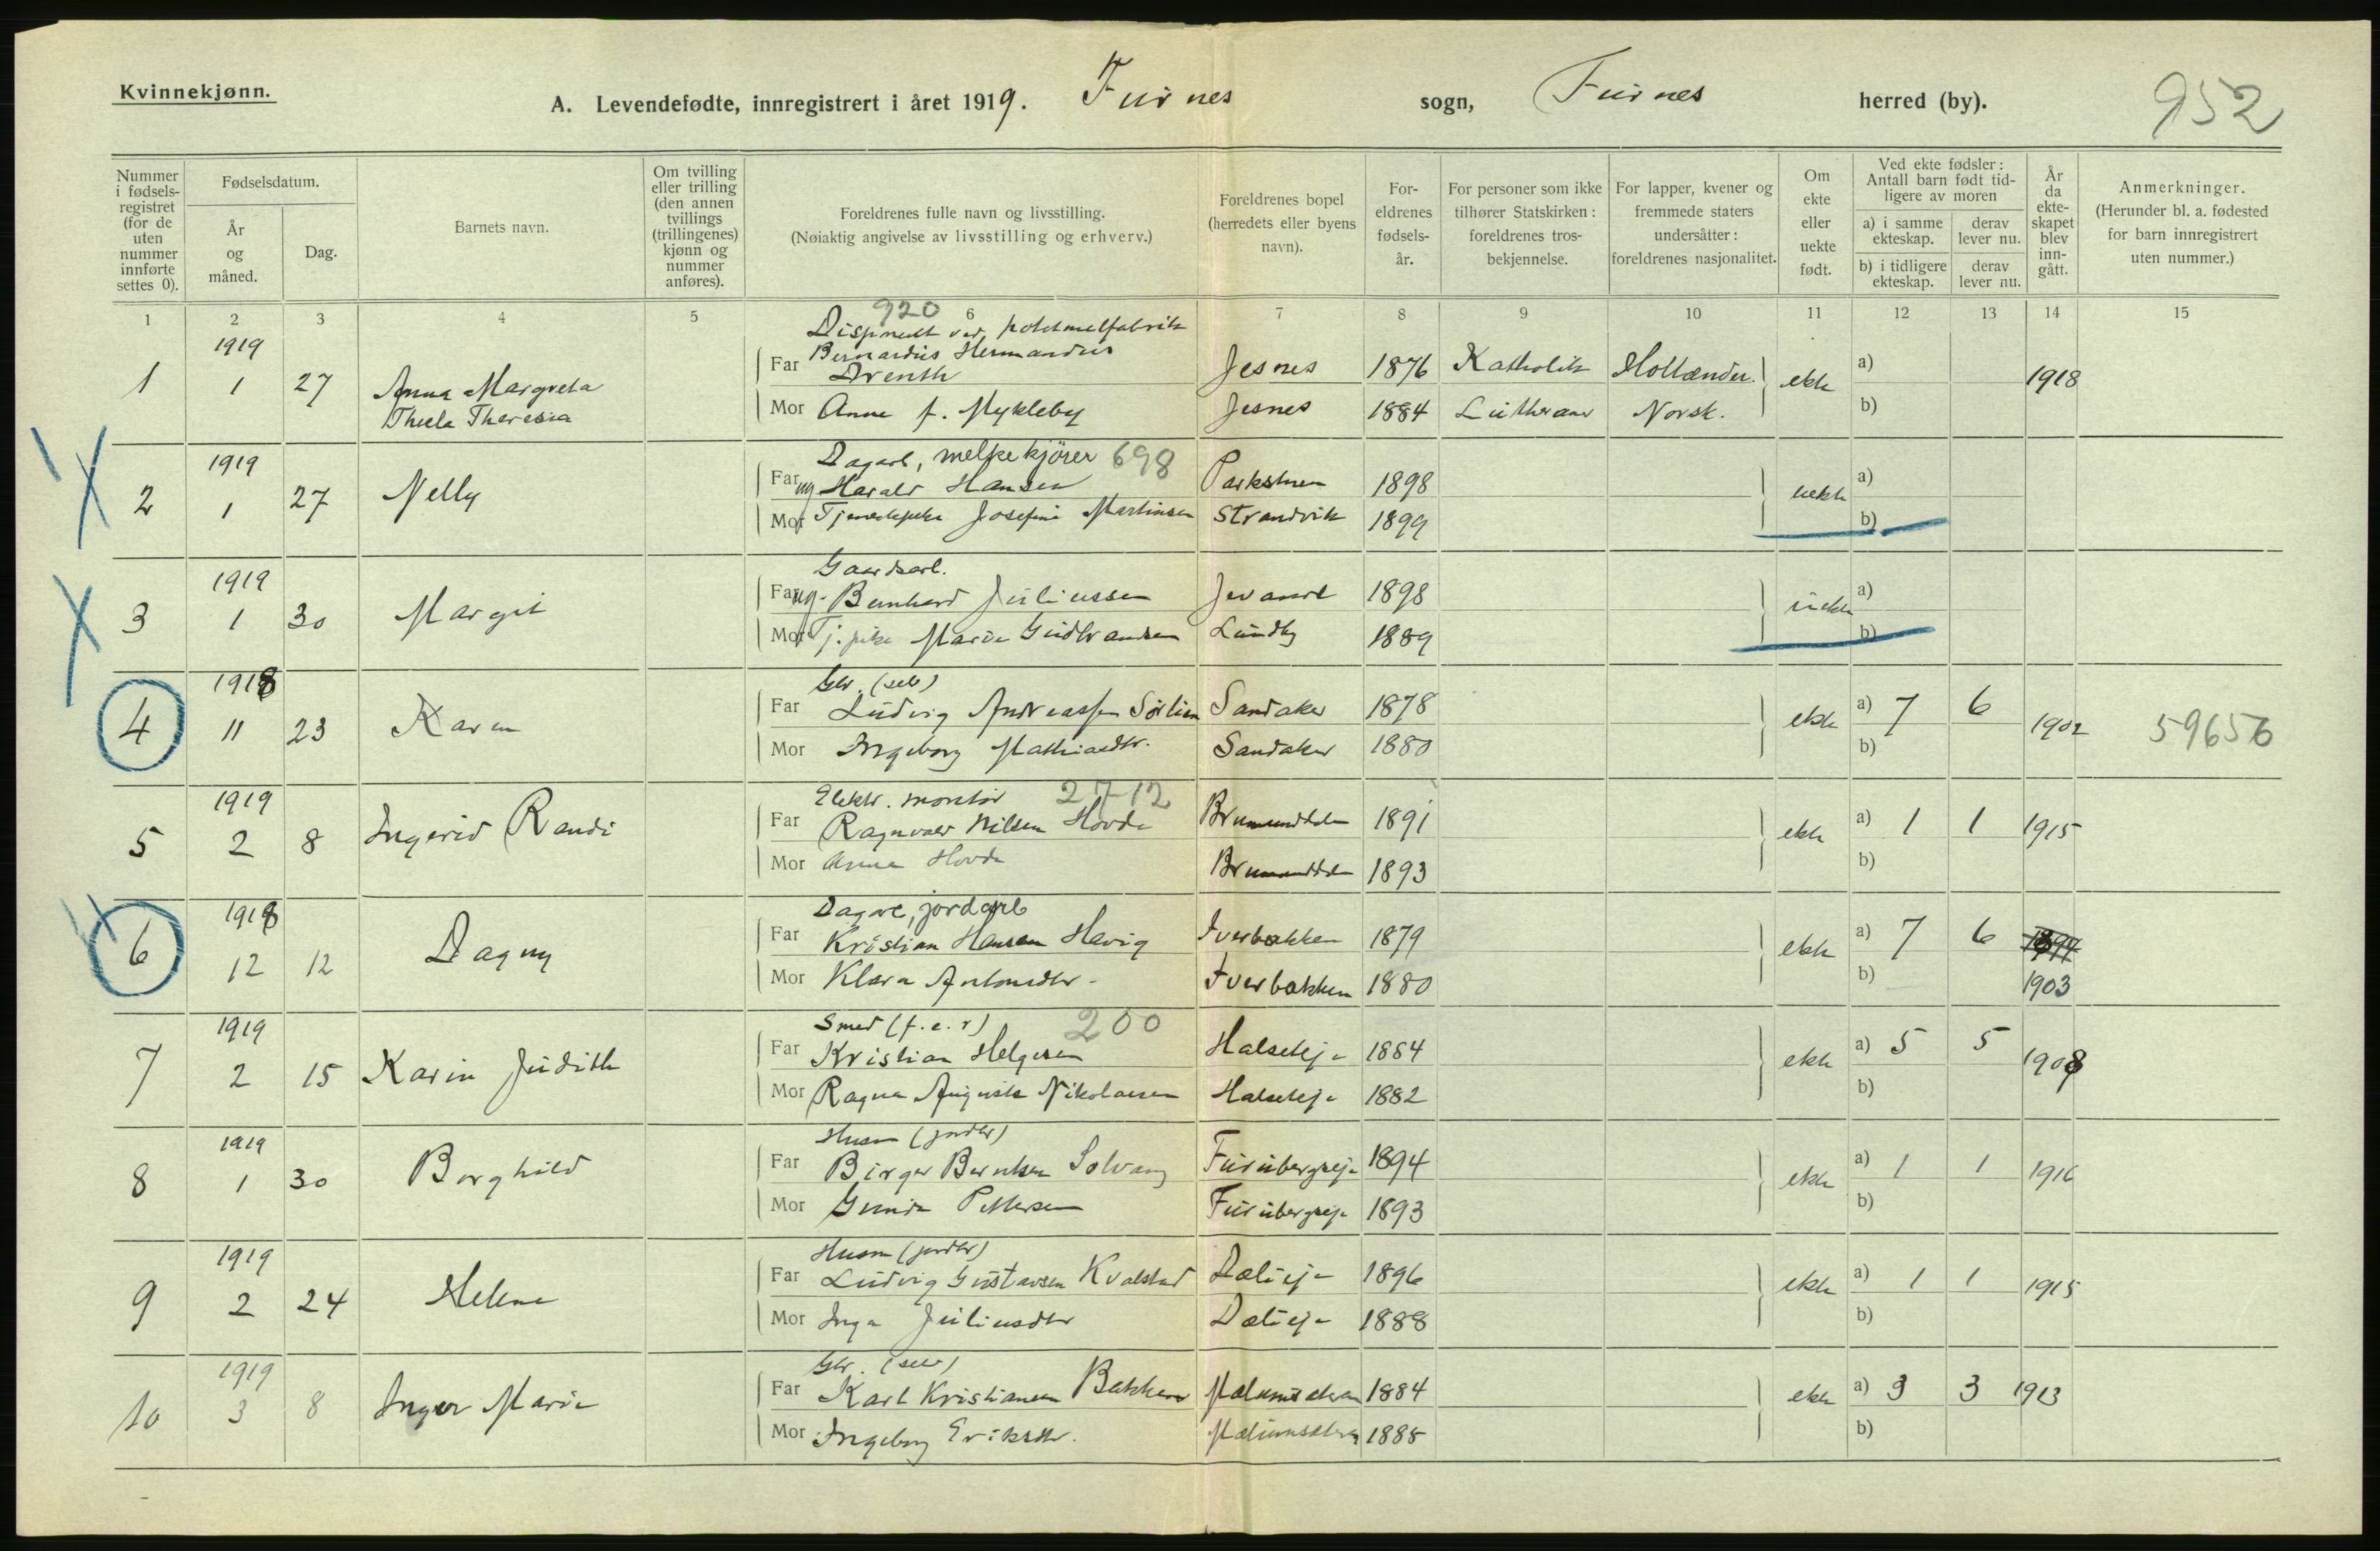 Kvinnekjønn.
A. Levendefødte, innregistrert i året 1919. Furnes sogn, Furnes herred (by). 952
Nummer i fødsels-registret (for de uten nummer innførte settes 0).
Fødselsdatum.
År og måned.
Dag.
Barnets navn.
Om tvilling eller trilling (den annen tvillings (trillingenes) kjønn og nummer anføres).
Foreldrenes fulle navn og livsstilling.
(Nøiaktig angivelse av livsstilling og erhverv.)
Foreldrenes bopel (herredets eller byens navn).
For-eldrenes fødsels-år.
For personer som ikke tilhører Statskirken: foreldrenes tros-bekjennelse.
For lapper, kvener og fremmede staters undersåtter: foreldrenes nasjonalitet.
Om ekte eller uekte født.
Ved ekte fødsler: Antall barn født tid-ligere av moren
a) i samme ekteskap.
derav lever nu.
b) i tidligere ekteskap.
derav lever nu.
År da ekte-skapet blev inn-gått.
Anmerkninger.
(Herunder bl. a. fødested for barn innregistrert uten nummer.)
1 2 3 4 5 6 7 8 9 10 11 12 13 14 15
920
1919
Bernardus Hermandus
1 1 27 Anna Margreta Far Drenth Jesnes 1876 Katholik Hollænder. ekte a) 1918
Theresia Mor Anne f. Mykleby Jesnes 1884 Lutheraner Norsk. b)
1919 Dagarb, melkekjörer 698
2 1 27 Nelly Far ug Harald Hansen 1898 uekte a)
Mor Josefine Martinsen Strandvik 1899 b)
1919 Gaardsarb.
3 1 30 Margit Far ug. Bernhard Juliussen 1898 uekte a)
Mor Tj. pike Marie Gudbrandsen Lundby 1889 b)
1918 Gbr. (selv)
4 11 23 Karen Far Ludvig Andreassen Sörlien Sandaker 1878 ekte a) 7 6 1902 59656
Mor Ingeborg Mathiasdtr. Sandaker 1880 b)
1919 Elektr. montör 2712
5 2 8 Ingerid Randi Far Ragnvald Nilsen Hovde Brumunddal 1891 ekte a) 1 1 1915
Mor Anna Hovde Brumunddal 1893 b)
1918 Dagarb, jordarb
6 12 12 Dagny Far Kristian Hansen Havig Iverbakken 1879 ekte a) 7 6
Mor Klara Antonsdtr. Iverbakken 1880 b) 1903
1919 Smed (f. e. r) 200
7 2 15 Karin Judith Far Kristian Helgesen Halseteje 1884 ekte a) 5 5 1908
Mor Ragna Augusta Nikolaisen Halseteje 1882 b)
1919 Husm (jordbr)
8 1 30 Borghild Far Birger Berntsen Solvang Furubergseje 1894 ekte a) 1 1 1916
Mor Gunda Pettersen Furubergseje 1893 b)
1919 Husm (jordbr)
9 2 24 Helene Far Ludvig Gustavsen Kvalstad Dælieje 1896 ekte a) 1 1 1915
Mor Inga Juliusdtr Dælieje 1888 b)
1919 Gbr. (selv)
10 3 8 Inger Marie Far Karl Kristiansen Bakken 1884 ekte a) 3 3 1913
Mor Ingeborg Eriksdtr. 1885 b)